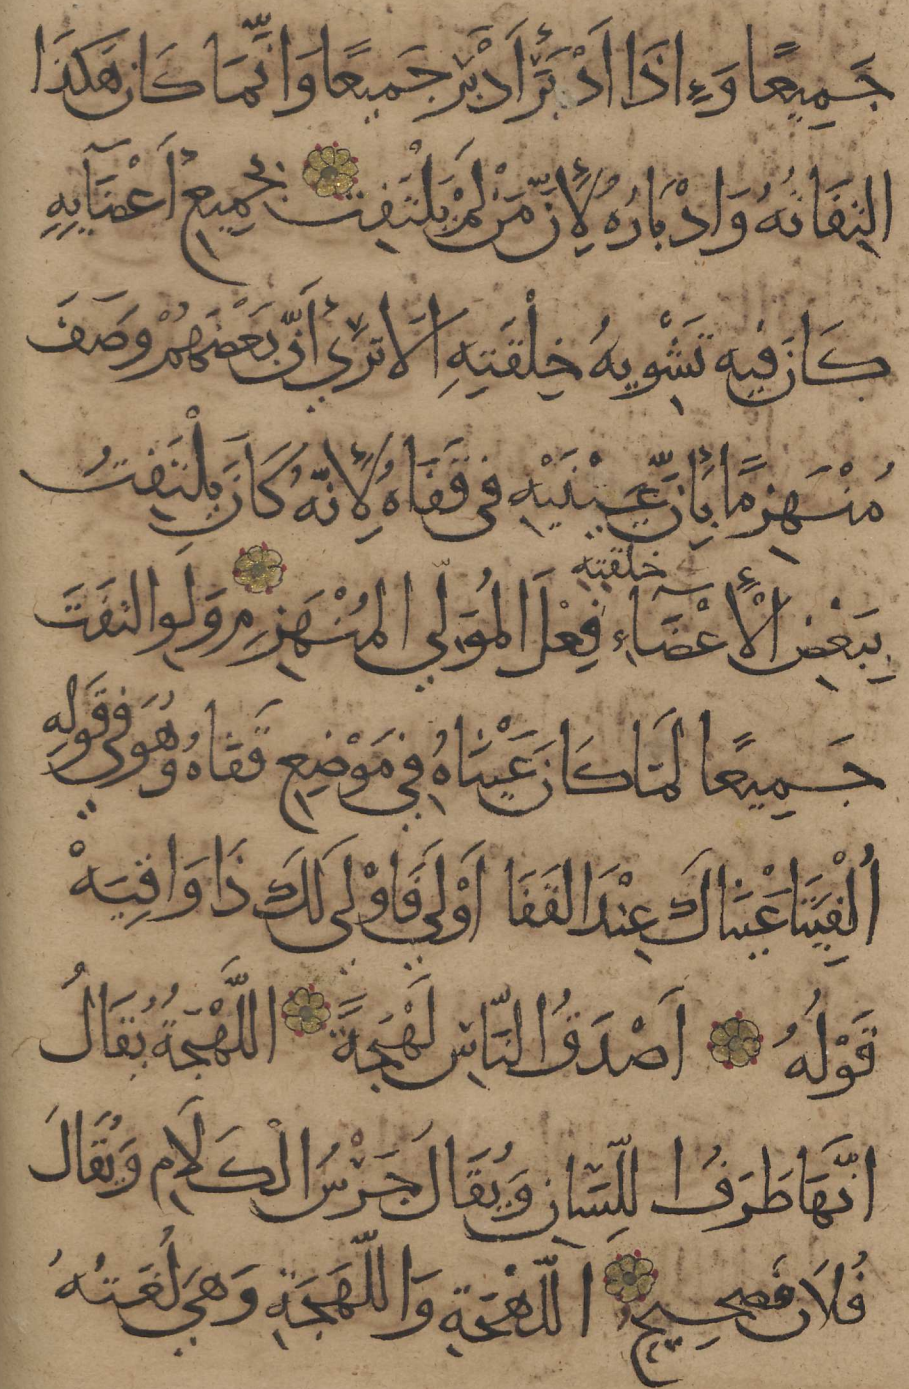 جَمِيعًا وَءِاذَا اَدْبَرَ أَدْبَرَ جَمِيعًا وَانَّمَا كَانَ هَكَذَا
التِفَاتُهُ وَادْبَارُهُ لِأَنَّ مَنْ لَمْ يَلْتَفِتْ بِجَمِيعِ أَعْضَآيِهِ
كَانَ فِيهِ تَشْوِيهُ خِلْقَتِهِ اَلَا تَرَى أَنَّ بَعْضَهُمْ وَصَفَ
مُنْهَزِمًا بِأَنَّ عَيْنَيْهِ فِي قَفَاهُ لِأَنَّهُ كَانَ يَلْتَفِتُ
خلقته
بِبَعْضِ الْأَعْضَآءِ فِعْلَ الْمُوَلِّي الْمُنْهَزِمِ وَلَوِ التَفَتَ
جَمِيعًا لَمَا كَانَ عَيْنَاهُ فِي مَوْضِعِ قَفَاهُ وَهُوَ فِي قَوْلِهِ
اُلْفِيَتَا عَيْنَاكَ عِنْدَ القَفَا اَوْلَى فَاَوْلَى لَكَ ذَا وَاقِيَهْ
قَوْلُهُ اَصْدَقُ النَّاسِ لَهْجَةً اللَّهْجَةُ يُقَالُ
انَّهَا طَرَفُ اللِّسَانِ وَيُقَالَ جَرْسُ الْكَلَامِ وَيُقَالَ
فُلَان فَصِيحُ اللَّهْجَةِ وَاللَّهَجَةِ وَهِيَ لُغَتُهُ